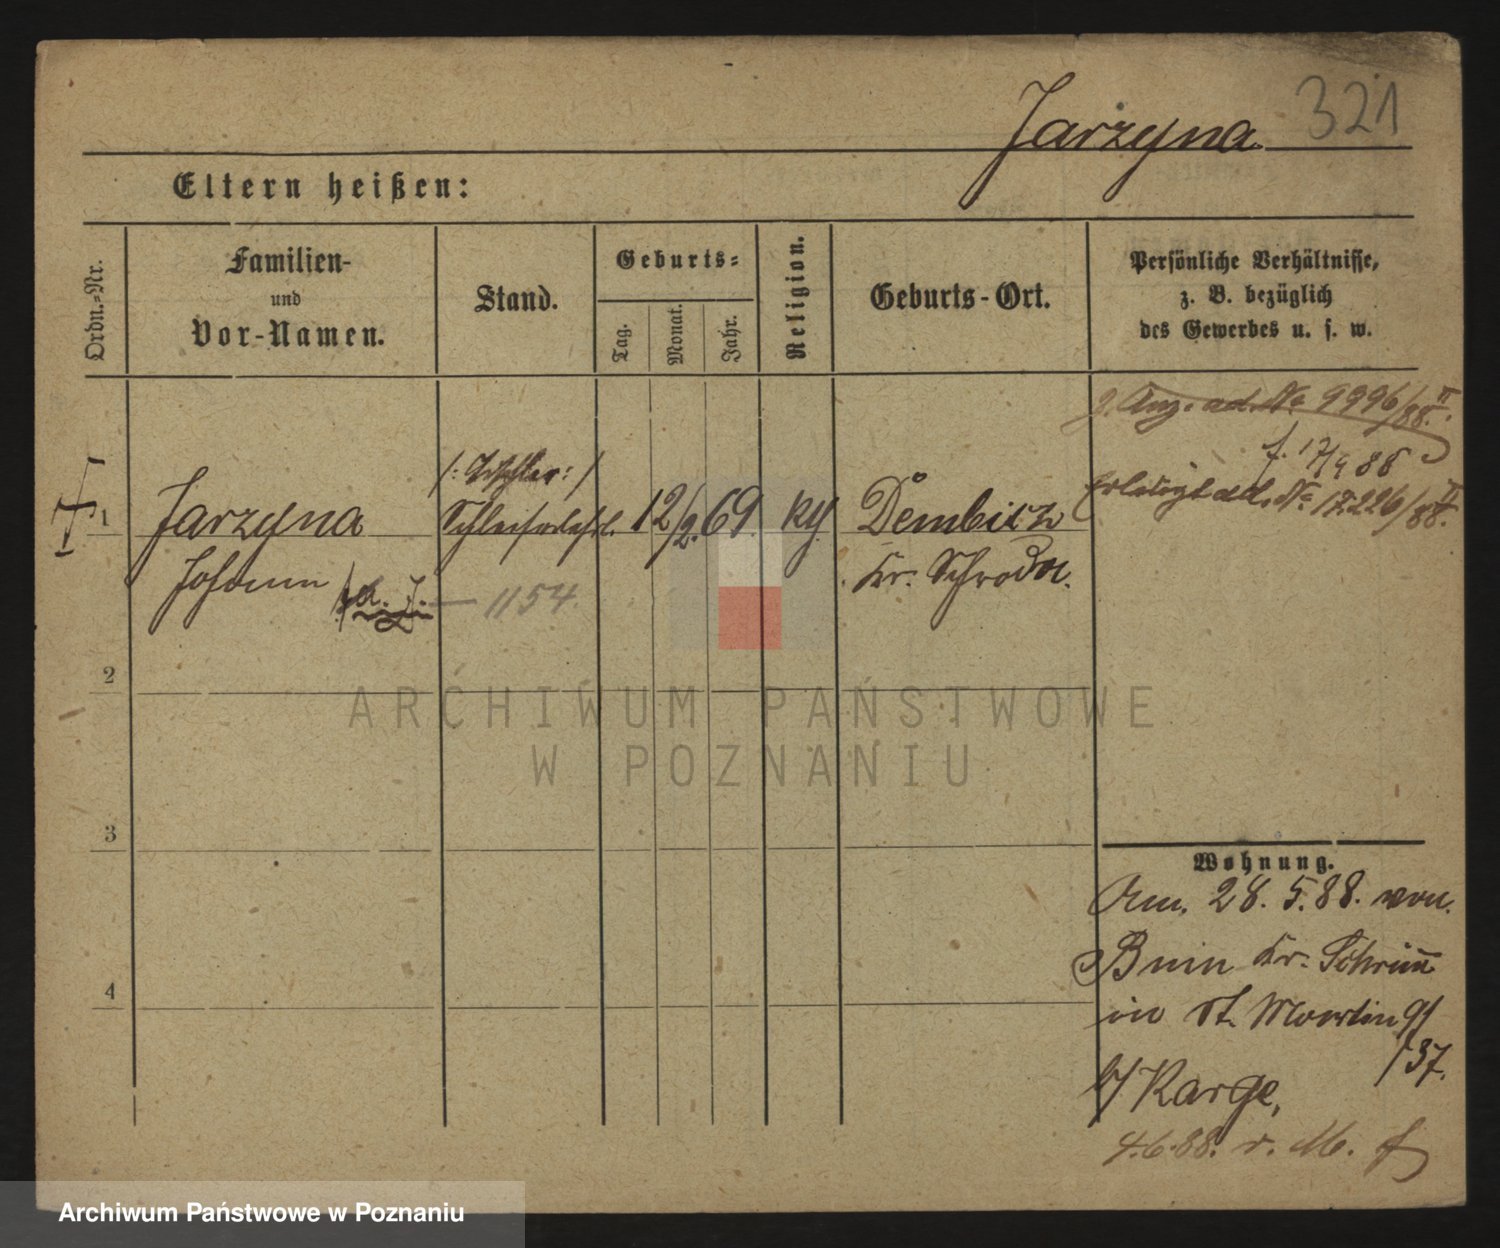 Jarzyna 321
Eltern heißen:
Ordn.=Nr.
Familien-
und
Vor-Namen.
Stand.
Geburts=
Tag.
Monat.
Jahr.
Religion.
Geburts-Ort.
Persönliche Verhältnisse,
z. B. bezüglich
des Gewerbes u. s. w.
ad. No 9996/88 II.
f. 17/9 88
Erledigt ad. No 17226/88 II.
1
Jarzyna
Johann
/: Tischler :/
1154.
12/2. 69.
Dembicz
Kr. Schroda.
2
3
4
Wohnung.
Am. 28. 5. 88. von.
Bnin Kr. Schrimm
in St. Martin
/37.
b/ Karge,
4.6.88. v. M.
ARCHIWUM PAŃSTWOWE
W POZNANIU
Archiwum Państwowe w Poznaniu